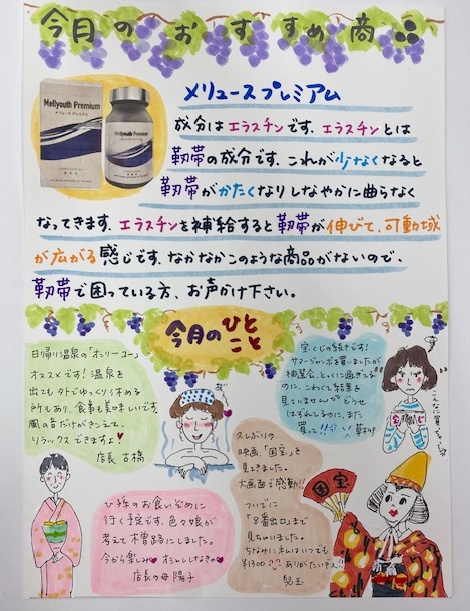 今月のおすすめ商品
Mellyouth Premium
メリュースプレミアム
Mellyouth Premium
メリュースプレミアム
成分はエラスチンです、エラスチンとは
靭帯の成分です、これが少なくなると
靭帯がかたくなりしなやかに曲らなく
なってきます、エラスチンを補給すると靭帯が伸びて、可動域
が広がる感じです、なかなかこのような商品がないので、
靭帯で困っている方、お声かけ下さい。
今月のひとこと
日帰り温泉の「オンリーユー」
オススメです!温泉を
出ても外でゆっくり休める
所もあり、食事も美味しいです。
風の音だけがきこえて、
リラックスできますよ
店長 古橋
宝くじの続きです!
サマージャンボを買いましたが
抽選会、とっくに過ぎてる
のに、こわくて結果を
見ていません どうせ
はずれてるのに、また
買って!!
久しぶりの
映画、「国宝」を
見てきました。
大画面で感動!!
ついでに
「8番出口」まで
見ちゃいました。
ちなみに私はいつでも
¥1300 ありがたいネ!!
児玉
国宝
ひ孫のお食いぞめに
行く予定です。色々娘が
考えて木曽路にしました。
今から楽しみ
店長の母 陽子